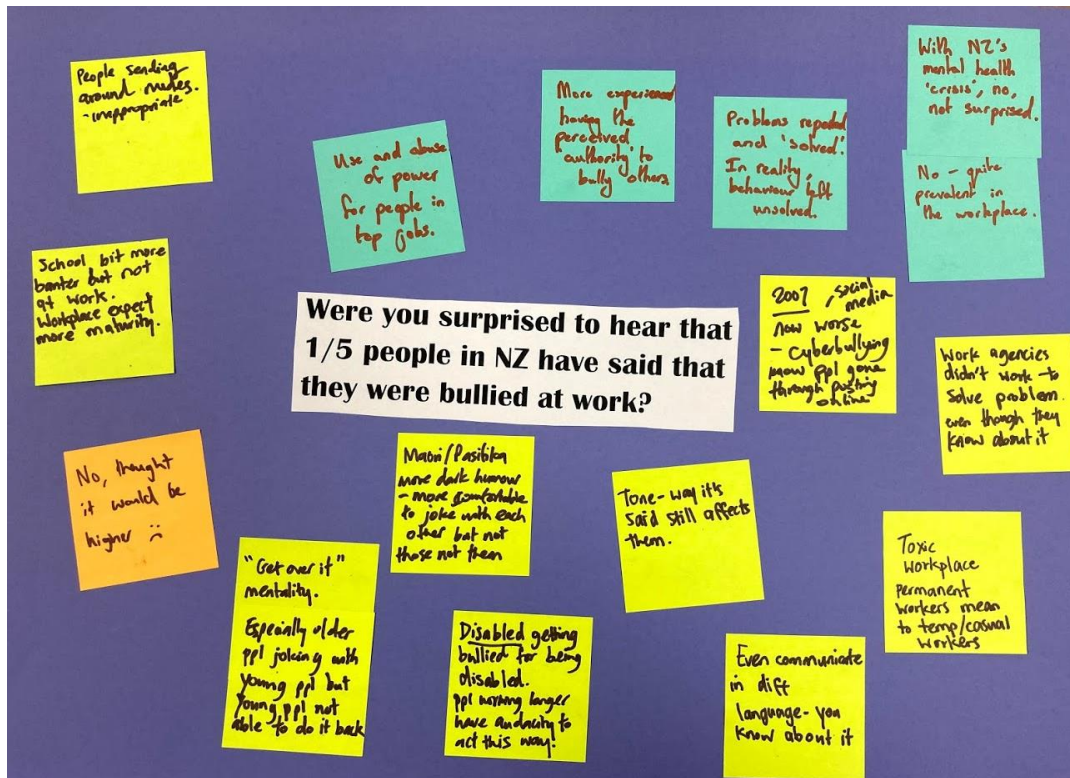 People sending
around nudes.
- inappropriate
Use and abuse
of power
for people in
top jobs.
More experienced
having the
perceived
'authority' to
bully others.
Problems reported
and 'solved'.
In reality,
behaviour left
unsolved.
With NZ's
mental health
'crisis', no,
not surprised.
No - quite
prevalent in
the workplace.
School bit more
banter but not
at work.
Workplace expect
more maturity.
Were you surprised to hear that
1/5 people in NZ have said that
they were bullied at work?
2007, social
media
now worse
- cyberbullying
more ppl gone
through posting
online
Work agencies
didn't work to
solve problem.
even though they
know about it
No, thought
it would be
higher :(
Maori/Pasifika
more dark humour
- more comfortable
to joke with each
other but not
those not them
Tone - way it's
said still affects
them.
Toxic
workplace
permanent
workers mean
to temp/casual
workers
"Get over it"
mentality.
Especially older
ppl joking with
young ppl but
young ppl not
able to do it back
Disabled getting
bullied for being
disabled.
ppl working longer
have audacity to
act this way!
Even communicate
in diff
language - you
know about it